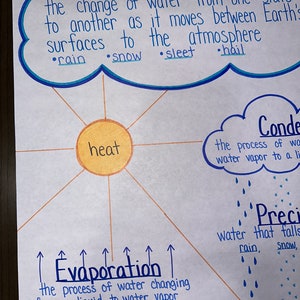 the change of water from one
to another as it moves between Earth
surfaces to the atmosphere
•rain •snow •sleet •hail
heat
Conde
the process of wa
water vapor to a li
Preci
water that falls
rain, snow,
Evaporation
the process of water changing
liquid to water vapor